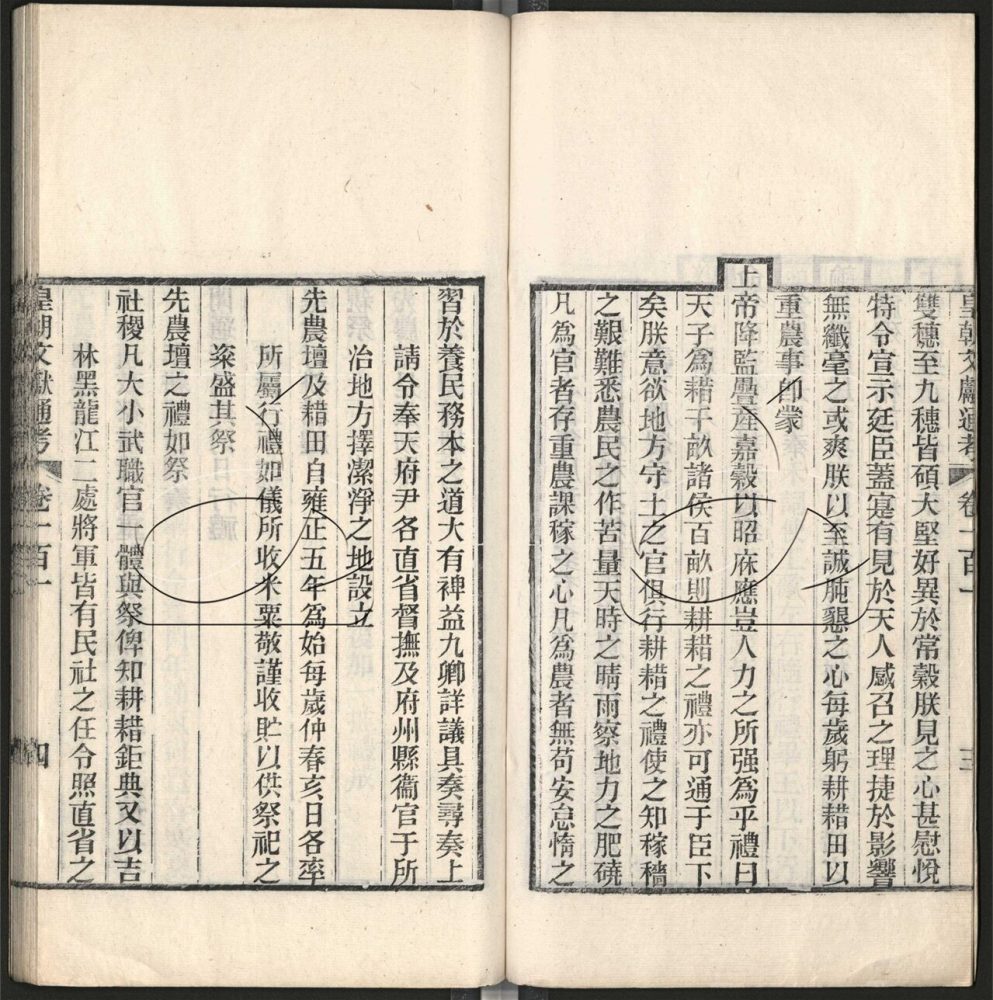 皇朝文獻通考 卷一百十 三
雙穗至九穗皆碩大堅好異於常穀朕見之心甚慰悅
特令宣示廷臣蓋寔有見於天人感召之理捷於影響
無纖毫之或爽朕以至誠肫懇之心每歲躬耕耤田以
重農事卽蒙
上帝降監疊產嘉穀以昭庥應豈人力之所强爲乎禮曰
天子爲耤千畝諸侯百畝則耕耤之禮亦可通于臣下
矣朕意欲地方守土之官俱行耕耤之禮使之知稼穡
之艱難悉農民之作苦量天時之晴雨察地力之肥磽
凡爲官者存重農課稼之心凡爲農者無苟安怠惰之
習於養民務本之道大有裨益九卿詳議具奏尋奏上
請令奉天府尹各直省督撫及府州縣衞官于所
治地方擇潔淨之地設立
先農壇及耤田自雍正五年爲始每歲仲春亥日各率
所屬行禮如儀所收米粟敬謹收貯以供祭祀之
粢盛其祭
先農壇之禮如祭
社稷凡大小武職官一體與祭俾知耕耤鉅典又以吉
林黑龍江二處將軍皆有民社之任令照直省之
皇朝文獻通考 卷一百十 四